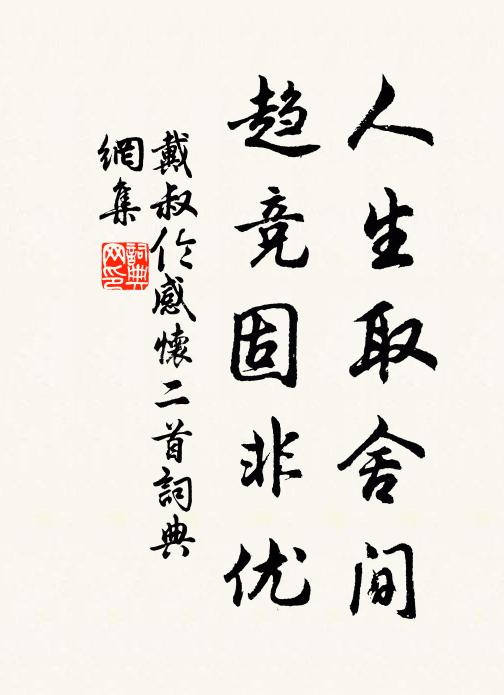 人生取舍间
趋竞固非优
戴叔伦感懷二首詞典
網集
詞典
网印